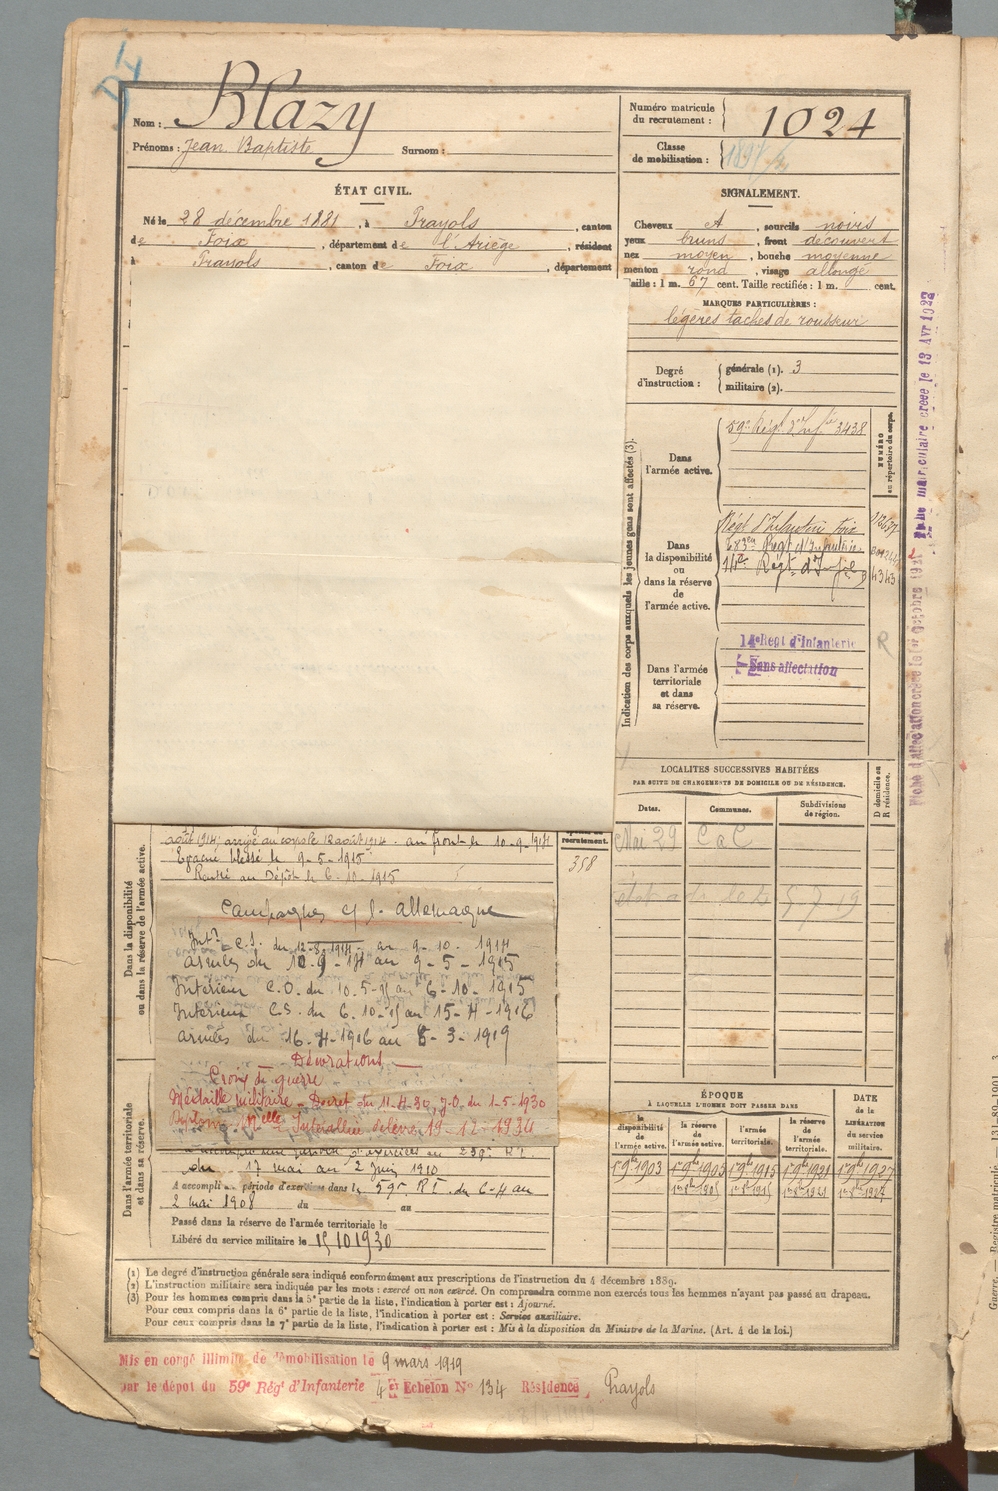 Nom : Blazy
Prénoms : Jean Baptiste Surnom :
Numéro matricule du recrutement : 1024
Classe de mobilisation :
ÉTAT CIVIL.
Né le 28 décembre 1881, à Prayols, canton
de Foix, département de l'Ariège, résidant
à Prayols, canton de Foix, département
SIGNALEMENT.
Cheveux A, sourcils noirs
yeux bruns, front découvert
nez moyen, bouche moyenne
menton rond, visage allongé
Taille : 1 m. 67 cent. Taille rectifiée : 1 m. cent.
MARQUES PARTICULIÈRES :
légères taches de rousseur
Degré d'instruction : générale (1). 3
militaire (2).
Indication des corps auxquels les jeunes gens sont affectés (3).
NUMÉRO au répertoire du corps.
Dans l'armée active.
59e Régt d'Infie 3438
Dans la disponibilité ou dans la réserve de l'armée active.
Régt d'Infanterie Foix
283e Régt d'Infanterie
14e Régt d'Infie
4343
Dans l'armée territoriale et dans sa réserve.
14e Régt d'Infanterie
Sans affectation
R
Fiche matriculaire créée le 13 Avr 1922
Fiche d'affectation créée le 1er Octobre 1921
LOCALITÉS SUCCESSIVES HABITÉES
PAR SUITE DE CHANGEMENTS DE DOMICILE OU DE RÉSIDENCE.
Dates. Communes. Subdivisions de région. D domicile ou R résidence.
Mai 29
Dans la disponibilité ou dans la réserve de l'armée active.
août 1914; arrivé au corps le 12 août 1914. au front le 10-9-1914
Evacué blessé le 9-5-1915
Rentré au Dépôt le 6-10-1915
recrutement.
358
Campagnes c/ l. allemagne
Intr C.S. du 12-8-1914 au 9-10-1914
armées du 10-9-14 au 9-5-1915
Intérieur C.D. du 10-5-15 au 6-10-1915
Intérieur C.S. du 6-10-15 au 15-4-1916
armées du 16-4-1916 au 8-3-1919
Décorations
Croix de guerre
Médaille militaire - Décret du 11-4-30, J.O. du 1-5-1930
Interalliée délivré 19-12-1934
Dans l'armée territoriale et dans sa réserve.
d'exercices au 259e RT
du 17 mai au 2 juin 1910
A accompli période d'exercices dans le 59e RI du 6-4 au
2 mai 1908 du au
Passé dans la réserve de l'armée territoriale le
Libéré du service militaire le 15 10 1930
ÉPOQUE
À LAQUELLE L'HOMME DOIT PASSER DANS
la disponibilité de l'armée active. la réserve de l'armée active. l'armée territoriale. la réserve de l'armée territoriale.
DATE de la LIBÉRATION du service militaire.
1er 9bre 1903 1er 9bre 1905 1er 9bre 1915 1er 9bre 1921 1er 9bre 1927
(1) Le degré d'instruction générale sera indiqué conformément aux prescriptions de l'instruction du 4 décembre 1889.
(2) L'instruction militaire sera indiquée par les mots : exercé ou non exercé. On comprendra comme non exercés tous les hommes n'ayant pas passé au drapeau.
(3) Pour les hommes compris dans la 5e partie de la liste, l'indication à porter est : Ajourné.
Pour ceux compris dans la 6e partie de la liste, l'indication à porter est : Service auxiliaire.
Pour ceux compris dans la 7e partie de la liste, l'indication à porter est : Mis à la disposition du Ministre de la Marine. (Art. 4 de la loi.)
Mis en congé illimité de démobilisation le 9 mars 1919
par le dépôt du 59e Rég' d'Infanterie 4e Echelon N° 134 Résidence Prayols